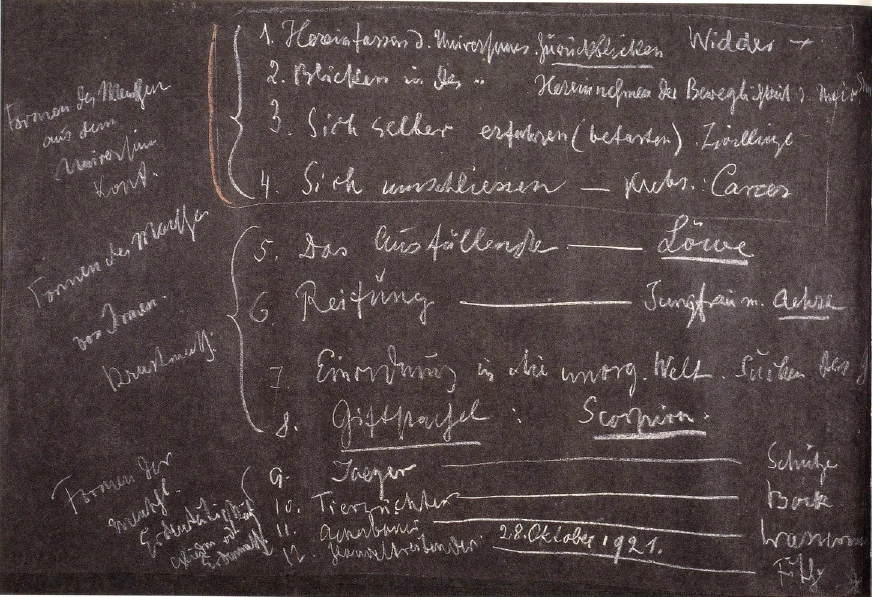 Formen des Menschen
aus dem
Universum
Kopf.
1. Hereinfassen d. Universums. Zurückblicken Widder
2. Blicken in das " Hereinnehmen der Beweglichkeit d.
3. Sich selber erfassen (betasten) Zwillinge
4. Sich umschliessen — Krebs: Cancer
Formen des Menschen
von Innen.
Brustmensch.
5. Das Ausfüllende — Löwe
6. Reifung — Jungfrau m. Aehre
7. Einordnung in die unorg. Welt. Suchen des
8. Giftstachel : Scorpion.
Formen der
menschl.
9. Jaeger — Schütze
10. Tierzüchter — Bock
11. Ackerbauer — Wasserm
12. Handeltreibender — Fische
28. Oktober 1921.